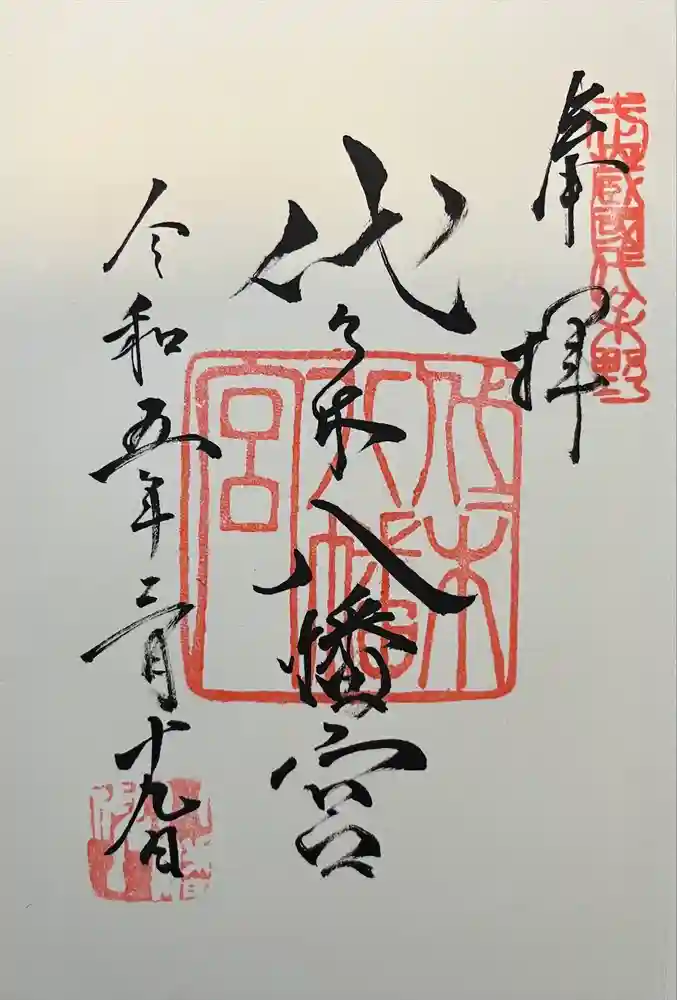 奉拝
武蔵国代々木野
代々木八幡宮
代々木
八幡
宮
令和五年三月十九日